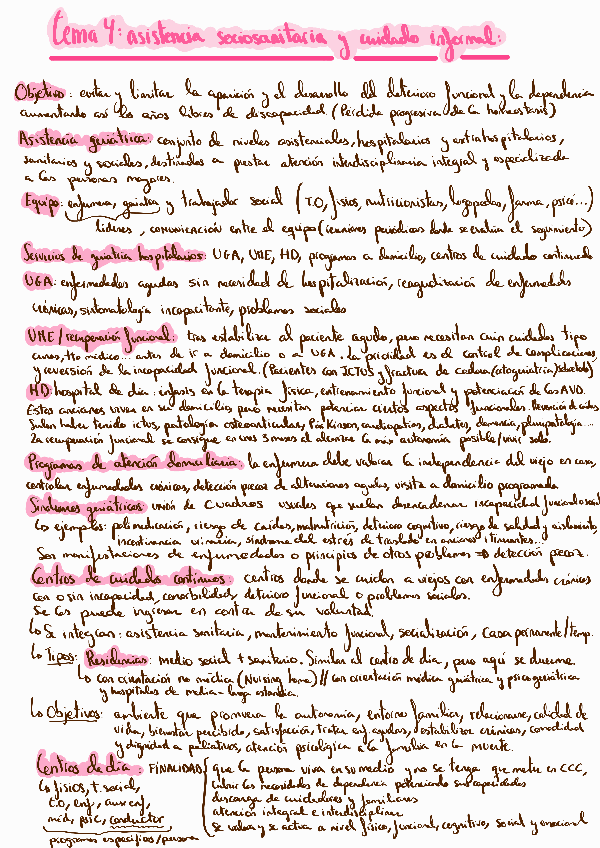 tema 4: asistencia sociosanitaria y cuidado informal:
Objetivo: evitar y limitar la aparición y el desarrollo del deterioro funcional y la dependencia
aumentando así los años libres de discapacidad (Pérdida progresiva de la homeostasis)
Asistencia geriátrica: conjunto de niveles asistenciales, hospitalarios y extrahospitalarios,
sanitarios y sociales, destinados a prestar atención interdisciplinaria integral y especializada
a las personas mayores.
Equipo: enfermera, geriatra y trabajador social (T.O, fisios, nutricionistas, logopedas, farma, psico...)
líderes, comunicación entre el equipo (reuniones periódicas donde se evalúa el seguimiento)
Servicios de geriatría hospitalarios: UGA, UME, HD, programas a domicilio, centros de cuidado continuado
UGA: enfermedades agudas sin necesidad de hospitalización, reagudización de enfermedades
crónicas, sintomatología incapacitante, problemas sociales
UME/recuperación funcional: tras estabilizar al paciente agudo, pero necesitan aún cuidados tipo
cures, tto médico... antes de ir a domicilio o a UGA. La prioridad es el control de complicaciones
y reversión de la incapacidad funcional. (Pacientes con ICTUS y fractura de cadera (ortogeriatría)
HD: hospital de día: énfasis en la terapia física, entrenamiento funcional y potenciación de las AVD.
Estos ancianos viven en su domicilio pero necesitan potenciar ciertos aspectos funcionales. Prevención de caídas.
Suelen haber tenido ictus, patología osteoarticular, Parkinson, cardiopatías, diabetes, demencia, pluripatología...
La recuperación funcional se consigue en unos 3 meses al alcanzar la máx autonomía posible/vivir solo.
Programas de atención domiciliaria: la enfermera debe valorar la independencia del viejo en casa,
controlar enfermedades crónicas, detección precoz de alteraciones agudas, visita a domicilio programada
Síndromes geriátricos: unión de cuadros usuales que suelen desencadenar incapacidad funcional o social
↳ ejemplos: polimedicación, riesgo de caídas, malnutrición, deterioro cognitivo, riesgo de soledad y aislamiento,
incontinencia urinaria, síndrome del estrés de traslado en ancianos itinerantes...
Son manifestaciones de enfermedades o principios de otros problemas ⇒ detección precoz.
Centros de cuidados continuos: centros donde se cuidan a viejos con enfermedades crónicas
con o sin incapacidad, comorbilidades, deterioro funcional o problemas sociales.
Se les puede ingresar en contra de su voluntad.
↳ Se integran: asistencia sanitaria, mantenimiento funcional, socialización, casa permanente/temp.
↳ Tipos: Residencias: medio social + sanitario. Similar al centro de día, pero aquí se duerme.
↳ con orientación no médica (Nursing home) // con orientación médica geriátrica y psicogeriátrica
y hospitales de media-larga estancia.
↳ Objetivos: ambiente que promueva la autonomía, entorno familiar, relacionarse, calidad de
vida, bienestar percibido, satisfacción, tratar enf. agudas, estabilizar crónicas, comodidad
y dignidad a paliativos, atención psicológica a la familia en la muerte.
Centros de día: FINALIDAD { que la persona viva en su medio y no se tenga que meter en CCC,
↳ fisios, t. social, cubrir las necesidades de dependencia potenciando sus capacidades
T.O, enf, aux enf, descarga de cuidadores y familiares
med, psic, conductor atención integral e interdisciplinar
programas específicos/persona se valora y se activa a nivel físico, funcional, cognitivo, social y emocional